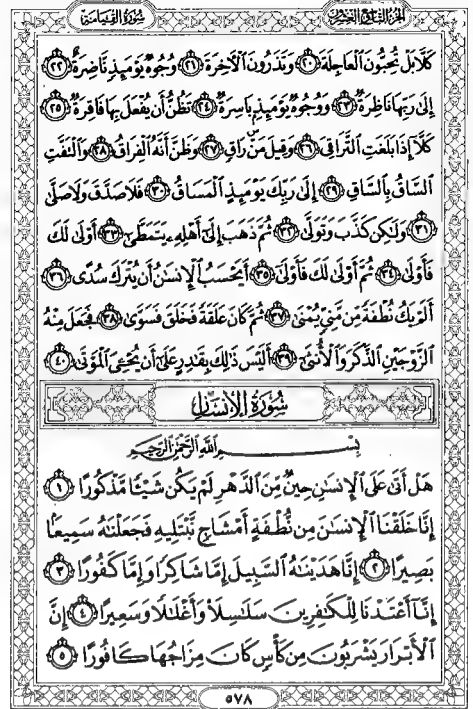 الجزء التاسع والعشرون
سورة القيامة
كَلَّا بَلْ تُحِبُّونَ ٱلْعَاجِلَةَ ٢٠ وَتَذَرُونَ ٱلْأَخِرَةَ ٢١ وُجُوهٌ يَوْمَئِذٍ نَّاضِرَةٌ ٢٢
إِلَىٰ رَبِّهَا نَاظِرَةٌ ٢٣ وَوُجُوهٌ يَوْمَئِذٍۭ بَاسِرَةٌ ٢٤ تَظُنُّ أَن يُفْعَلَ بِهَا فَاقِرَةٌ ٢٥
كَلَّآ إِذَا بَلَغَتِ ٱلتَّرَاقِىَ ٢٦ وَقِيلَ مَنْ ۜ رَاقٍ ٢٧ وَظَنَّ أَنَّهُ ٱلْفِرَاقُ ٢٨ وَٱلْتَفَّتِ
ٱلسَّاقُ بِٱلسَّاقِ ٢٩ إِلَىٰ رَبِّكَ يَوْمَئِذٍ ٱلْمَسَاقُ ٣٠ فَلَا صَدَّقَ وَلَا صَلَّىٰ
٣١ وَلَٰكِن كَذَّبَ وَتَوَلَّىٰ ٣٢ ثُمَّ ذَهَبَ إِلَىٰٓ أَهْلِهِۦ يَتَمَطَّىٰٓ ٣٣ أَوْلَىٰ لَكَ
فَأَوْلَىٰ ٣٤ ثُمَّ أَوْلَىٰ لَكَ فَأَوْلَىٰٓ ٣٥ أَيَحْسَبُ ٱلْإِنسَٰنُ أَن يُتْرَكَ سُدًى ٣٦
أَلَمْ يَكُ نُطْفَةً مِّن مَّنِىٍّ يُمْنَىٰ ٣٧ ثُمَّ كَانَ عَلَقَةً فَخَلَقَ فَسَوَّىٰ ٣٨ فَجَعَلَ مِنْهُ
ٱلزَّوْجَيْنِ ٱلذَّكَرَ وَٱلْأُنثَىٰٓ ٣٩ أَلَيْسَ ذَٰلِكَ بِقَٰدِرٍ عَلَىٰٓ أَن يُحْـِۧىَ ٱلْمَوْتَىٰ ٤٠
سورة الإنسان
بِسْمِ ٱللَّهِ ٱلرَّحْمَٰنِ ٱلرَّحِيمِ
هَلْ أَتَىٰ عَلَى ٱلْإِنسَٰنِ حِينٌ مِّنَ ٱلدَّهْرِ لَمْ يَكُن شَيْـًٔا مَّذْكُورًا ١
إِنَّا خَلَقْنَا ٱلْإِنسَٰنَ مِن نُّطْفَةٍ أَمْشَاجٍ نَّبْتَلِيهِ فَجَعَلْنَٰهُ سَمِيعًۢا
بَصِيرًا ٢ إِنَّا هَدَيْنَٰهُ ٱلسَّبِيلَ إِمَّا شَاكِرًا وَإِمَّا كَفُورًا ٣
إِنَّآ أَعْتَدْنَا لِلْكَٰفِرِينَ سَلَٰسِلَا۟ وَأَغْلَٰلًا وَسَعِيرًا ٤ إِنَّ
ٱلْأَبْرَارَ يَشْرَبُونَ مِن كَأْسٍ كَانَ مِزَاجُهَا كَافُورًا ٥
٥٧٨